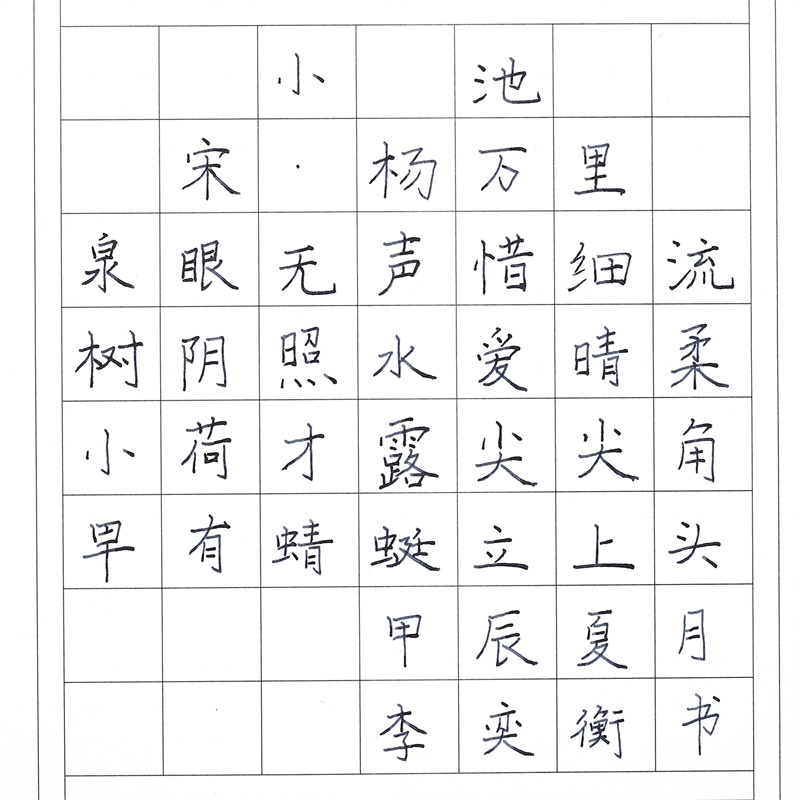 小池
宋·杨万里
泉眼无声惜细流
树阴照水爱晴柔
小荷才露尖尖角
早有蜻蜓立上头
甲辰夏月
李奕衡书